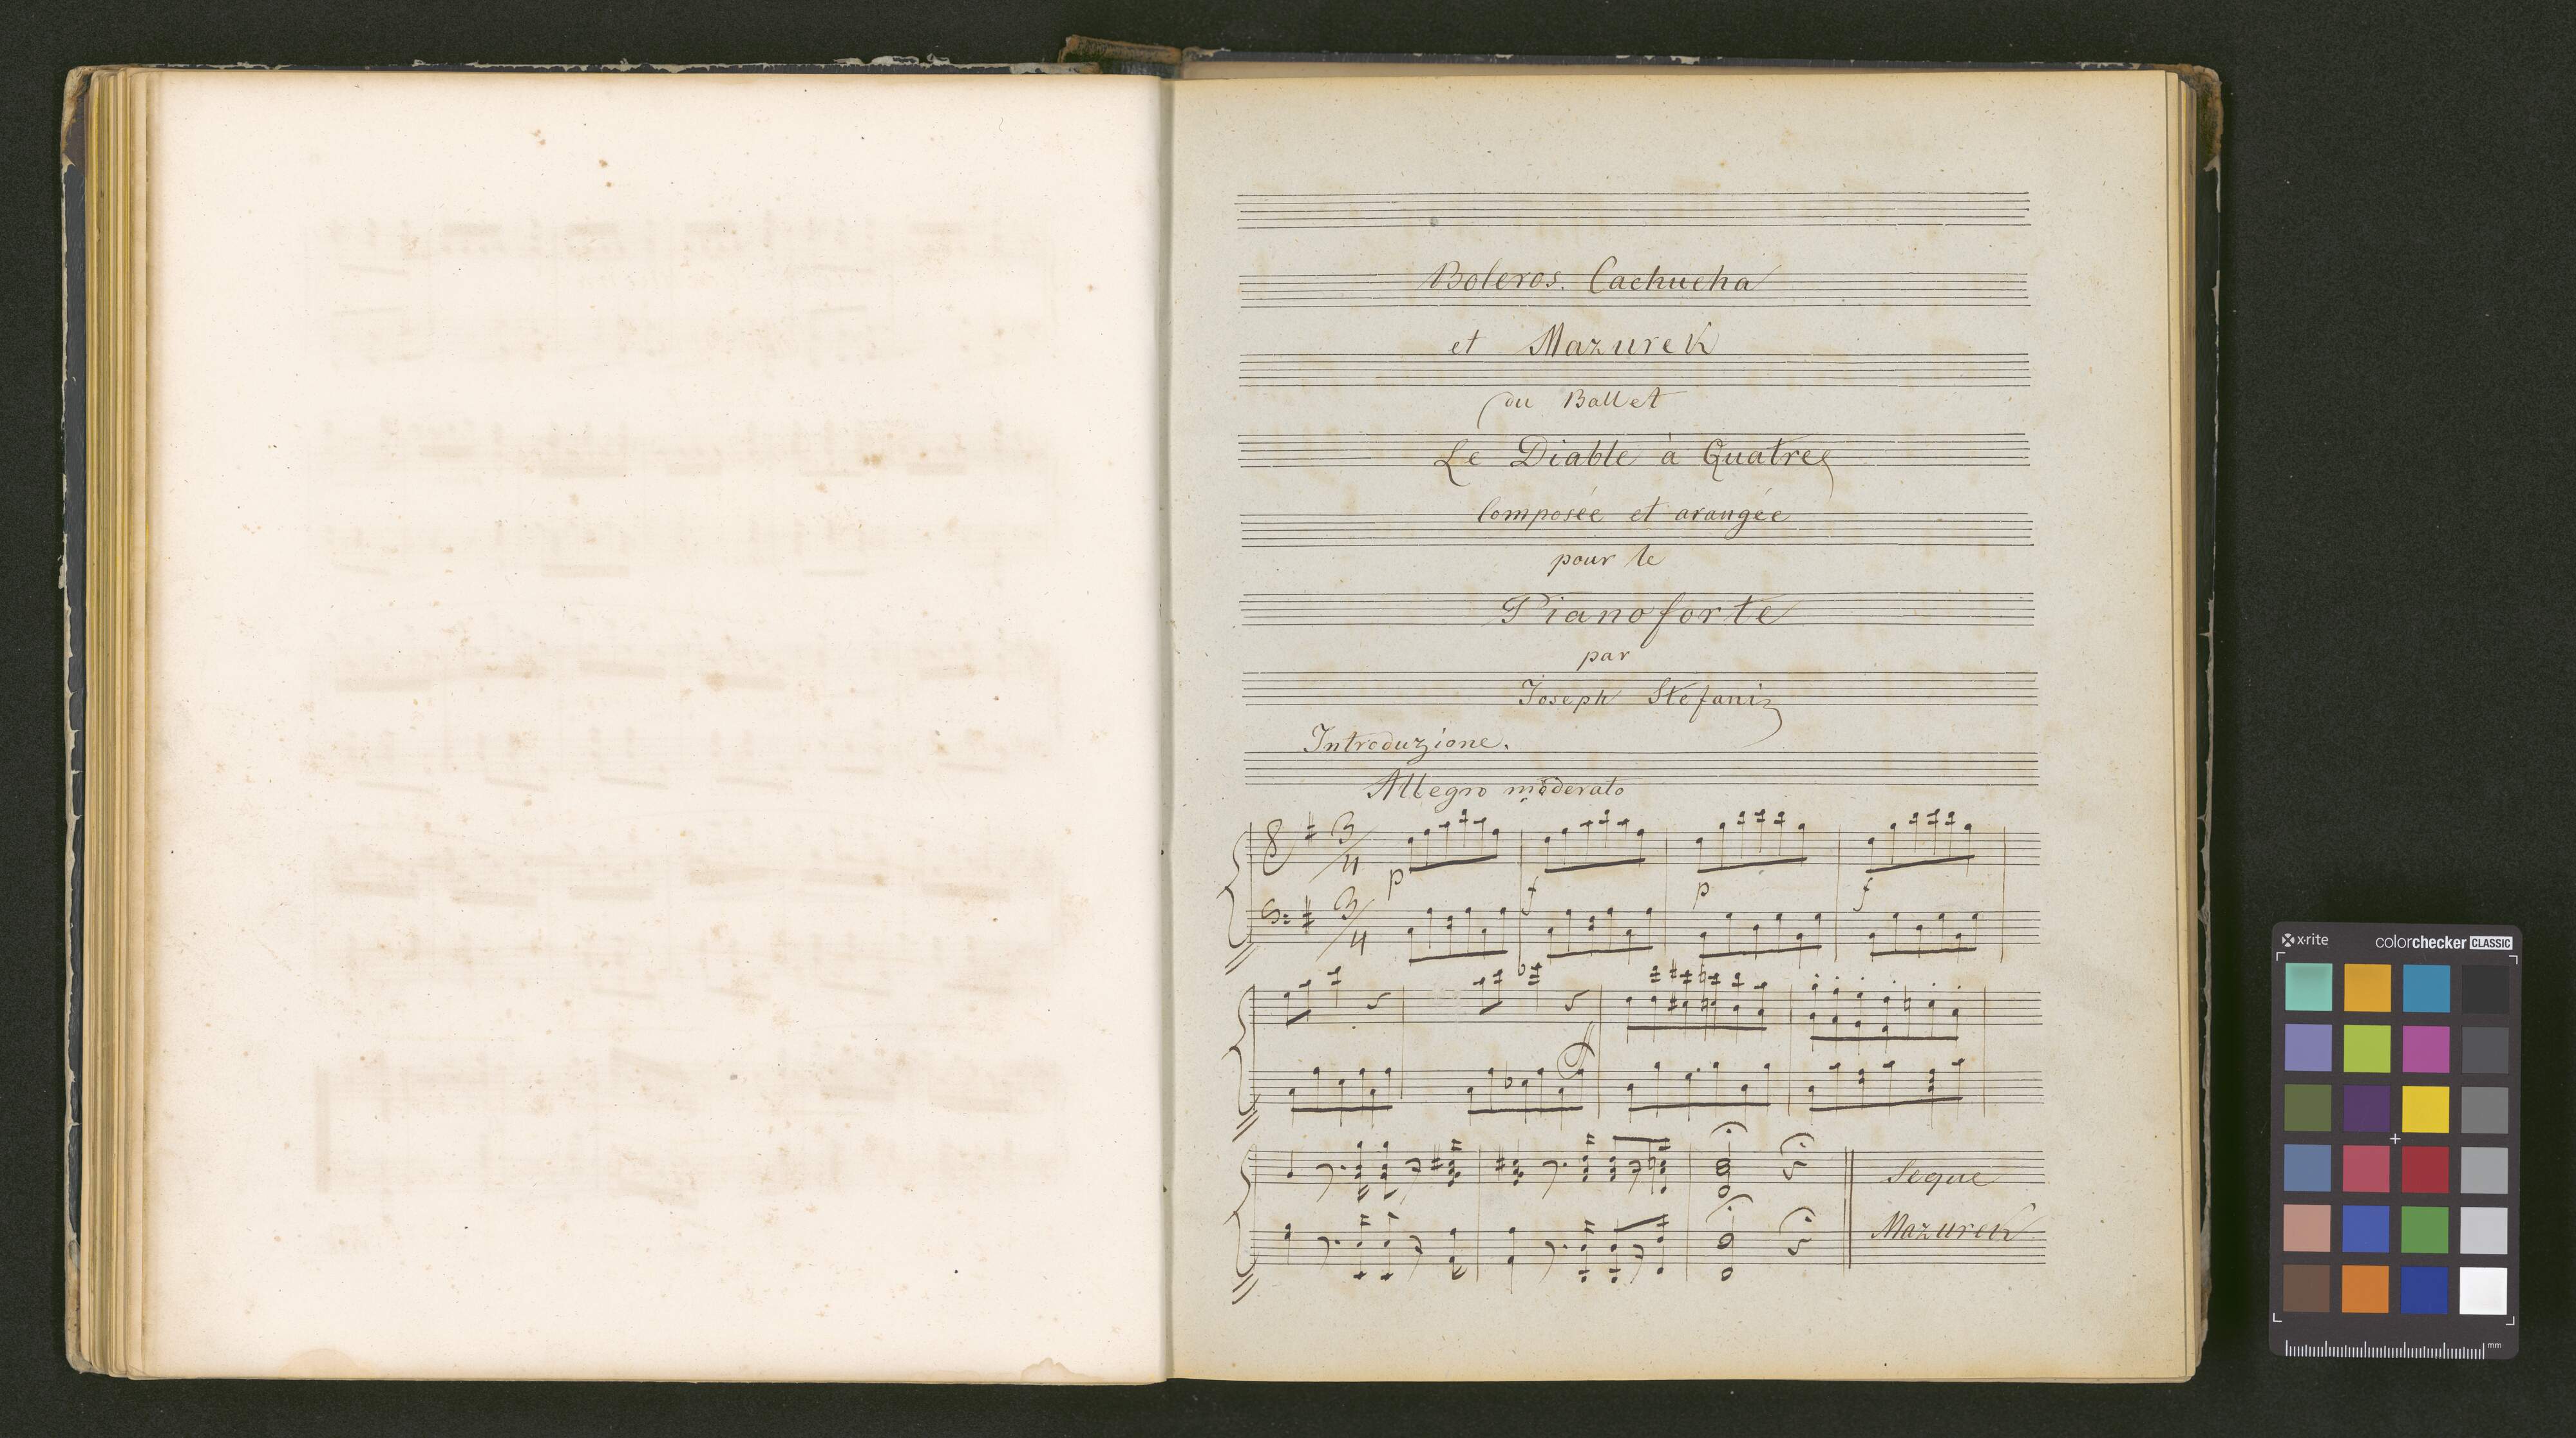 Boleros. Cachucha
et Mazurek
du Ballet
Le Diable à Quatre
Composée et arangée
pour le
Pianoforte
par
Joseph Stefani
Introduzione.
Allegro moderato
3/4
p f p f
3/4
Segue
Mazurek
x-rite colorchecker CLASSIC
mm